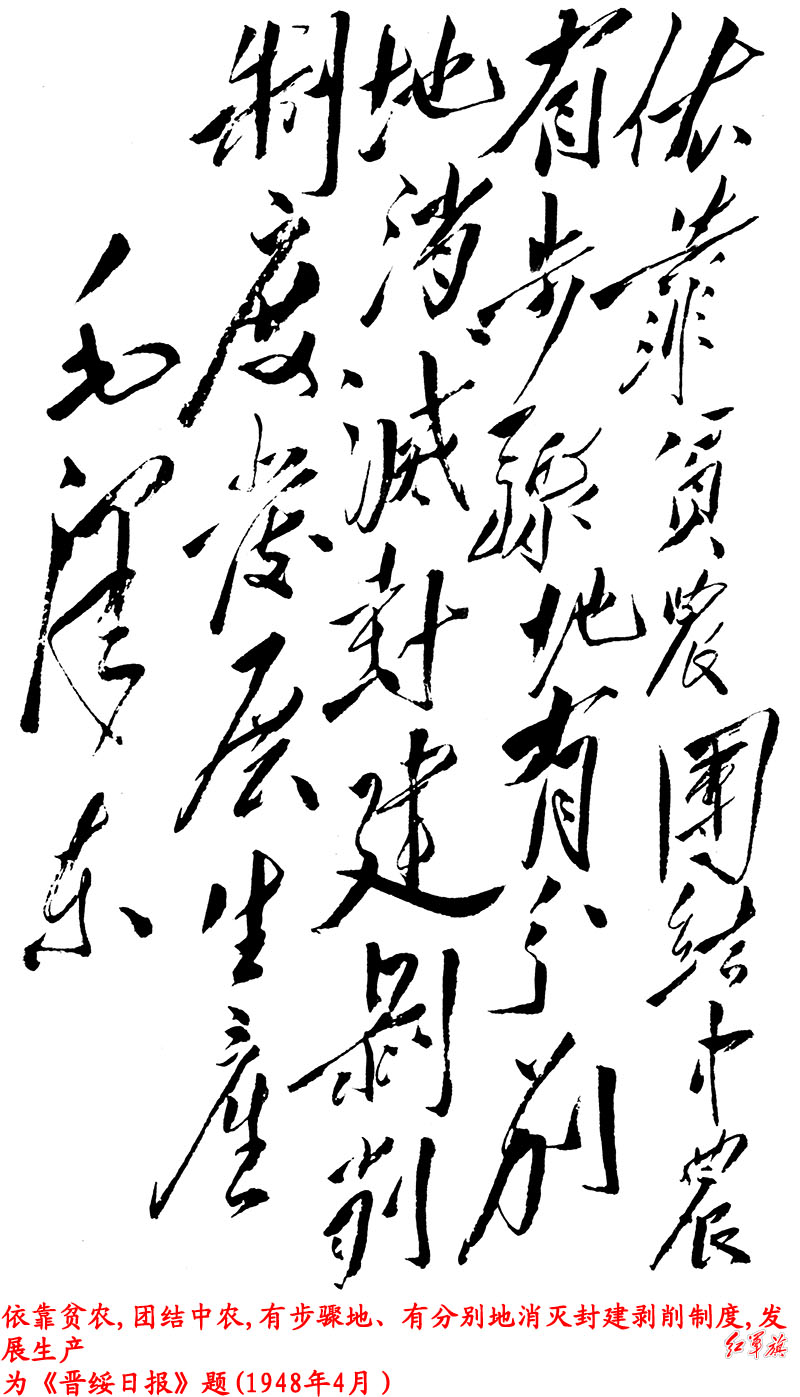 依靠貧農團結中農
有步驟地有分别
地消滅封建剥削
制度發展生產
毛澤东
依靠贫农,团结中农,有步骤地、有分别地消灭封建剥削制度,发
展生产
为《晋绥日报》题(1948年4月)
红军旗